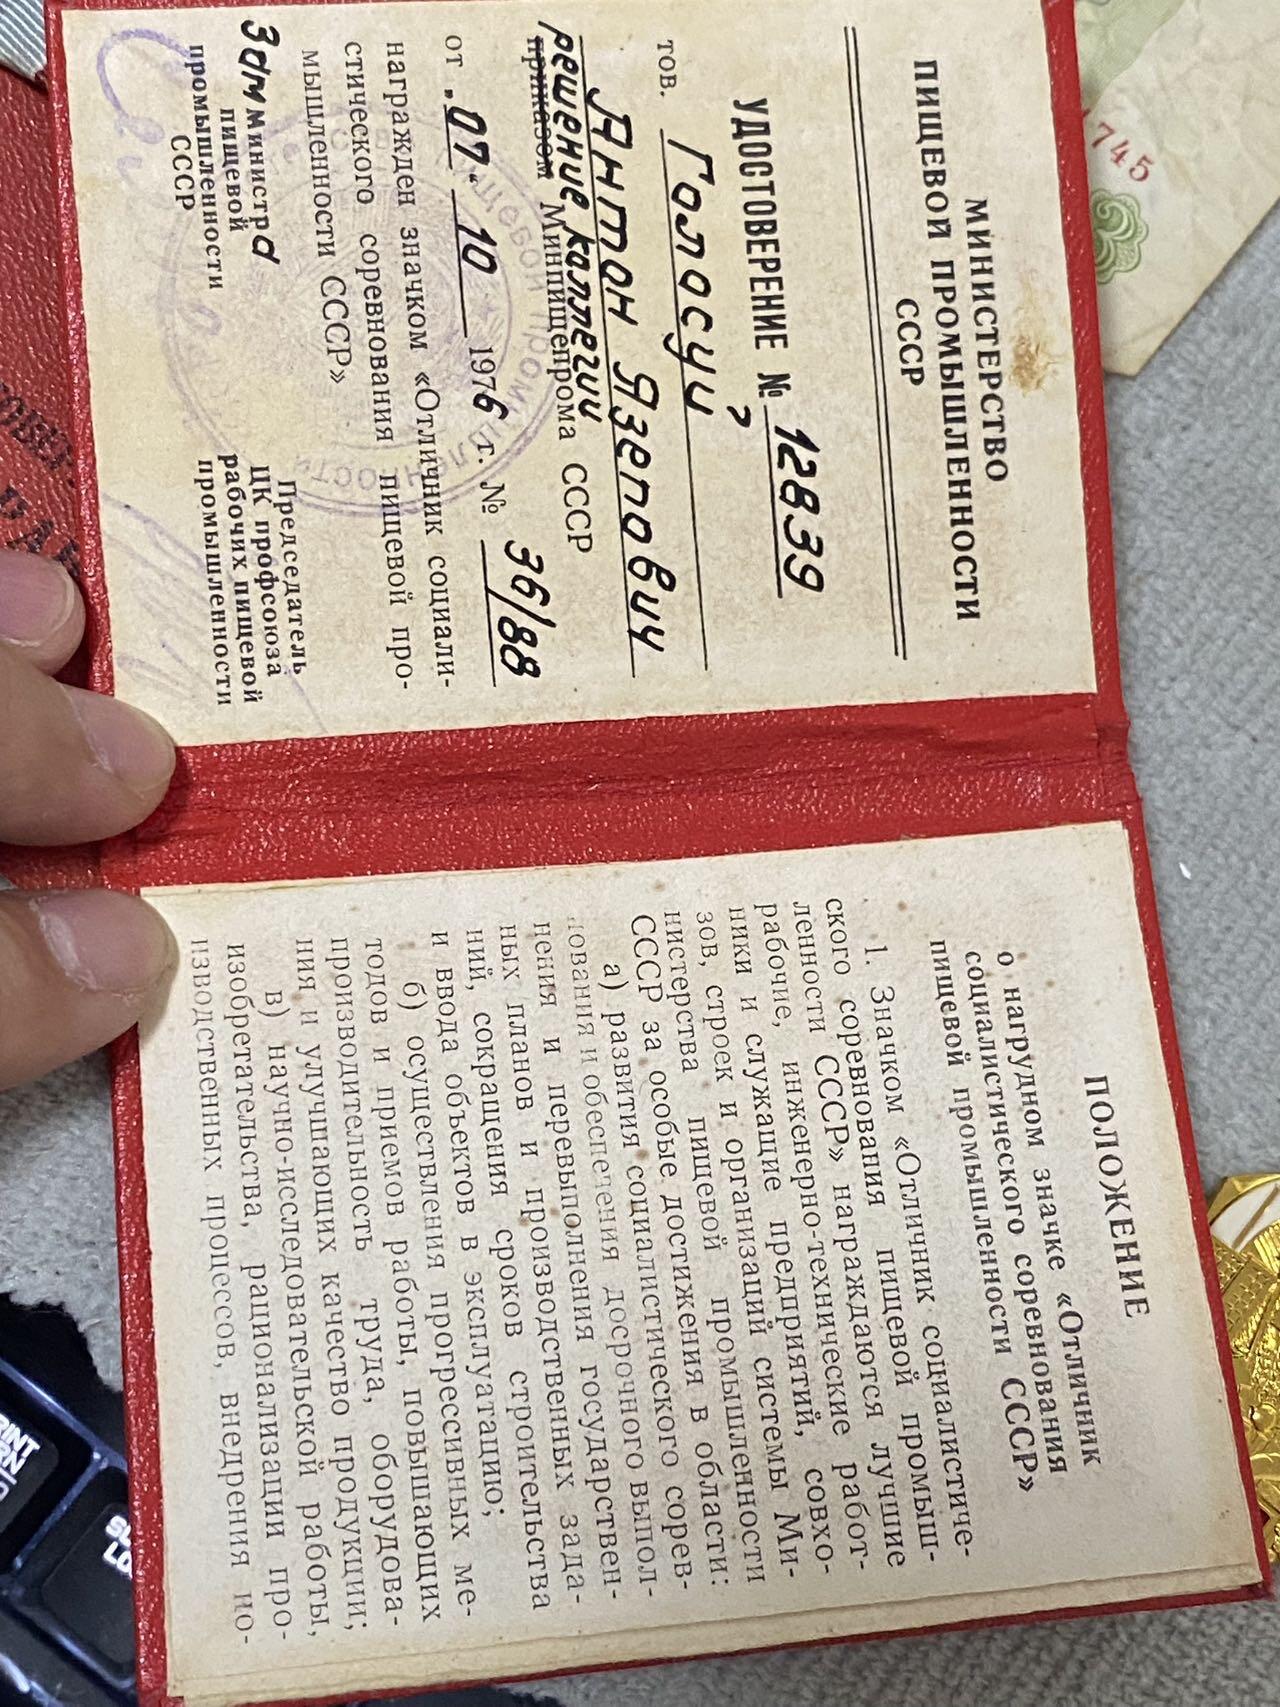 МИНИСТЕРСТВО
ПИЩЕВОЙ ПРОМЫШЛЕННОСТИ
СССР
УДОСТОВЕРЕНИЕ № 12839
тов. Голосуй
Антон Язепович
решение коллегии
приказом Минпищепрома СССР
от „07“ 10 1976 г. № 36/88
награжден значком «Отличник социали-
стического соревнования пищевой про-
мышленности СССР»
Зам министра
пищевой
промышленности
СССР
Председатель
ЦК профсоюза
рабочих пищевой
промышленности
ПОЛОЖЕНИЕ
о нагрудном значке «Отличник
социалистического соревнования
пищевой промышленности СССР»
1. Значком «Отличник социалистиче-
ского соревнования пищевой промыш-
ленности СССР» награждаются лучшие
рабочие, инженерно-технические работ-
ники и служащие предприятий, совхо-
зов, строек и организаций системы Ми-
нистерства пищевой промышленности
СССР за особые достижения в области:
а) развития социалистического сорев-
нования и обеспечения досрочного выпол-
нения и перевыполнения государствен-
ных планов и производственных зада-
ний, сокращения сроков строительства
и ввода объектов в эксплуатацию;
б) осуществления прогрессивных ме-
тодов и приемов работы, повышающих
производительность труда, оборудова-
ния и улучшающих качество продукции;
в) научно-исследовательской работы,
изобретательства, рационализации про-
изводственных процессов, внедрения но-
745